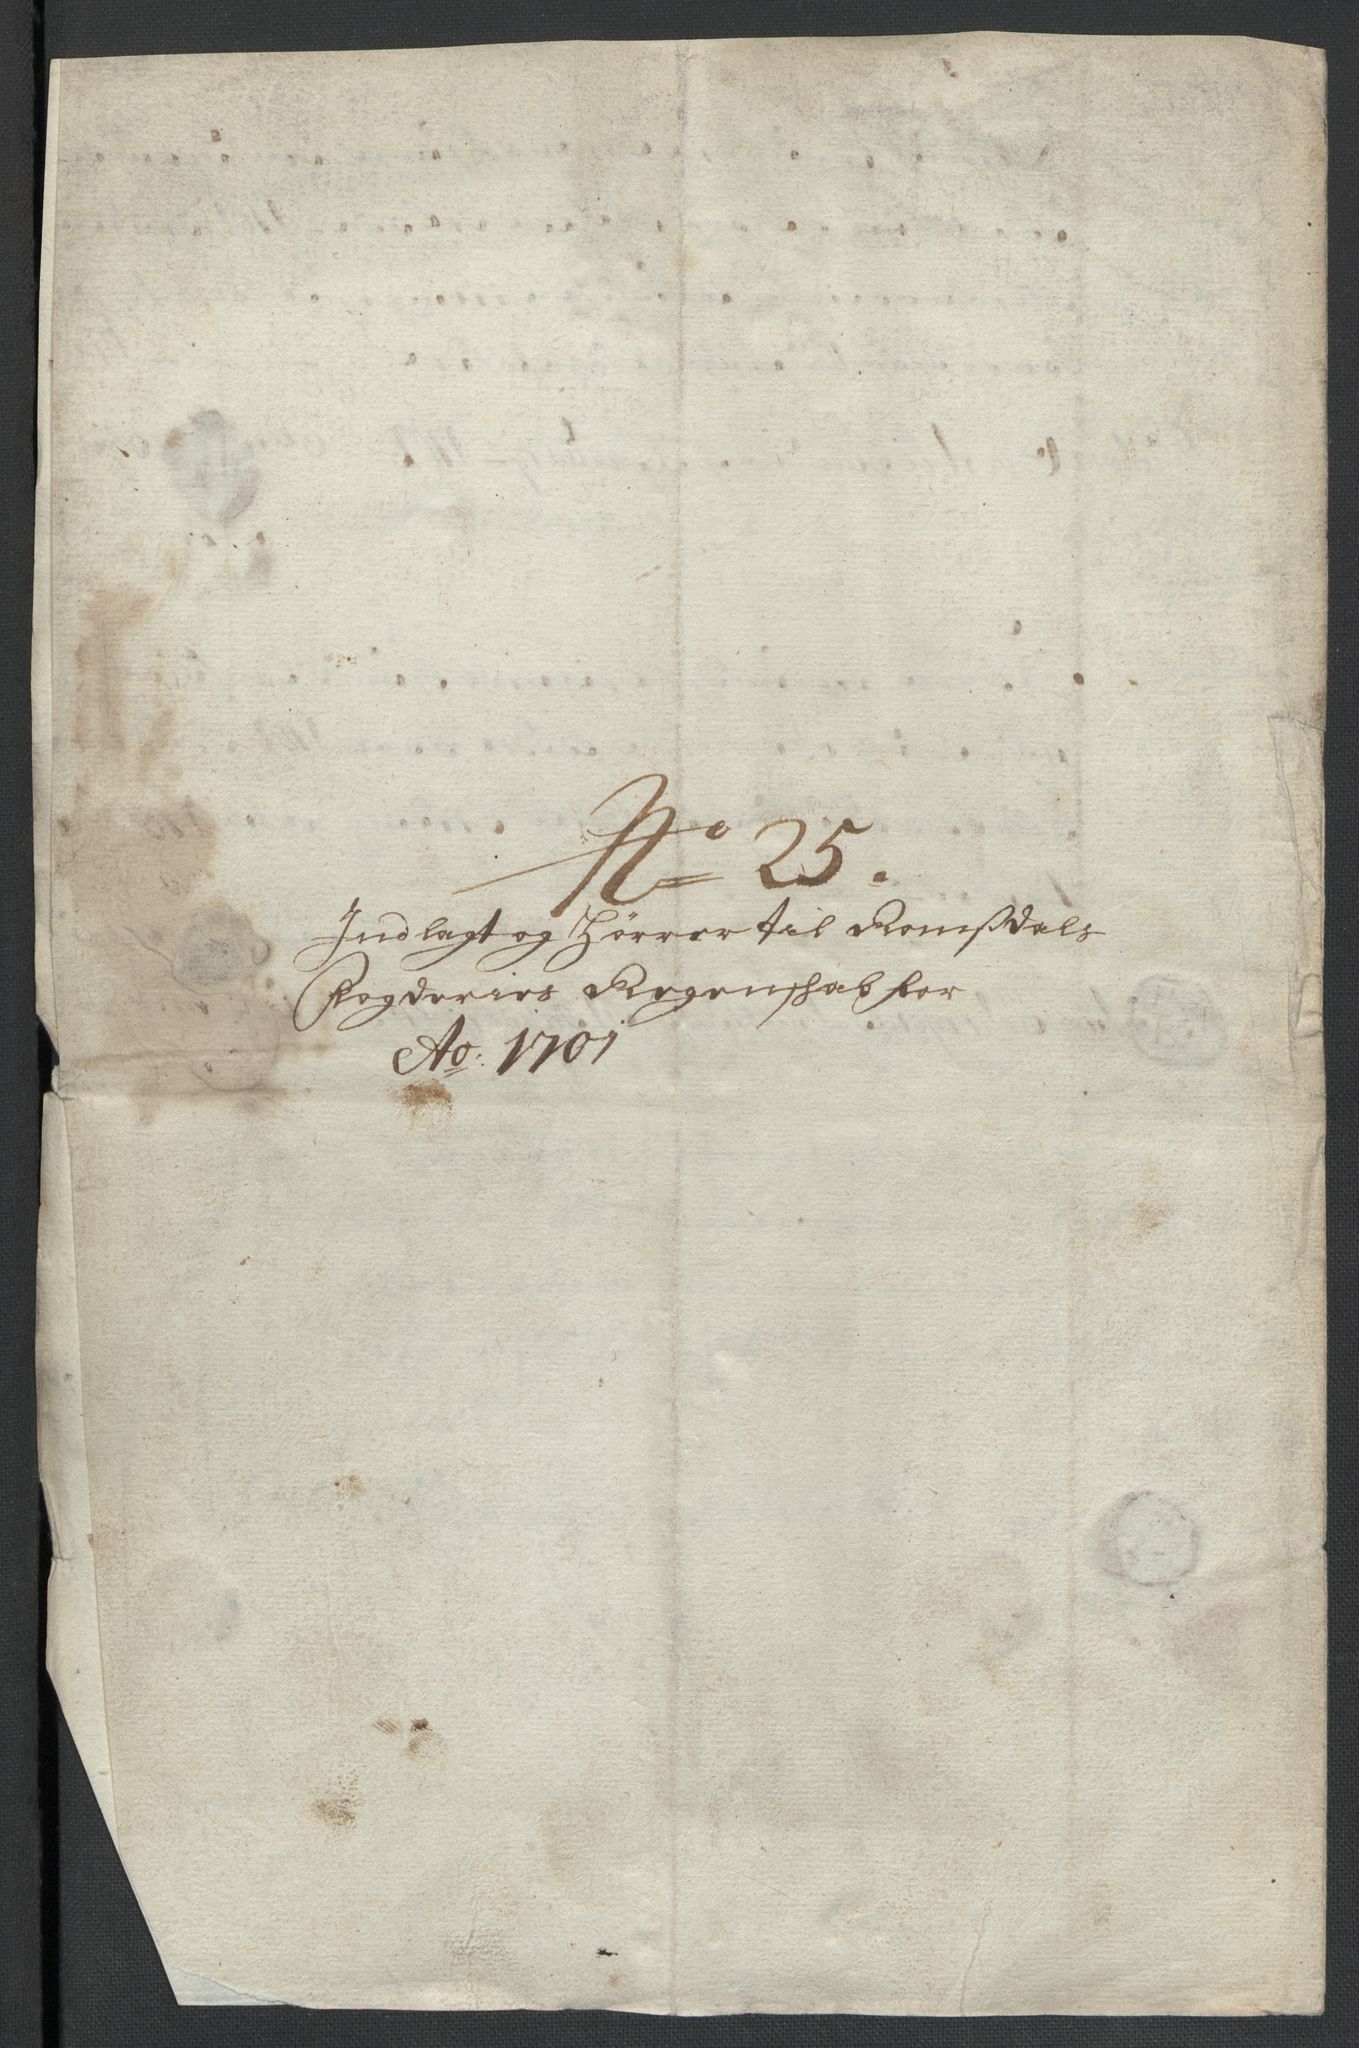 No 25.
Indlagt og Hörrer til Romsdals
Fogderies Regenschab for
Ao. 1701